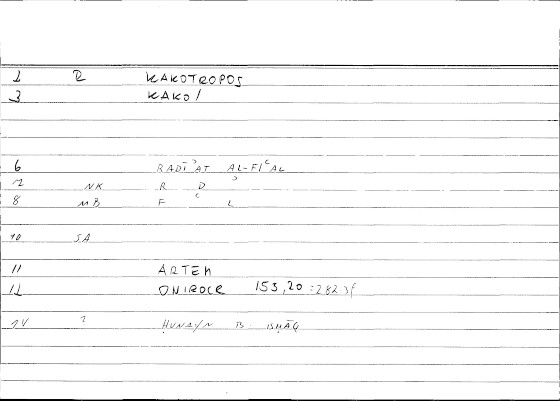 1 R KAKOTROPOS
3 KAKO/
6 RADĪʾAT AL-FIʿAL
7 NK R D ʾ
8 MB F ʿ L
10 SA
11 ARTEM
12 ONIROCR 153,20 :282 3f
14 2 ḤUNAYN B. ISḤĀQ